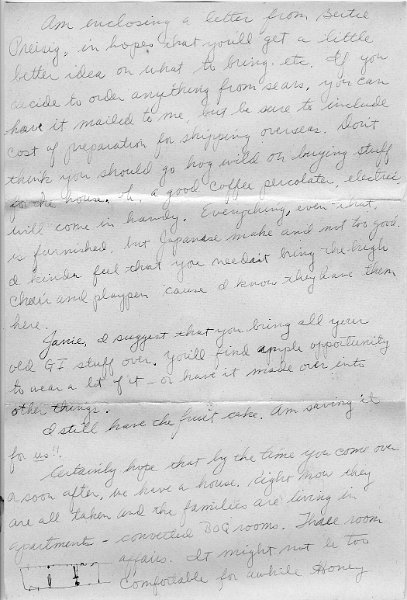 Am enclosing a letter from Bertie
Preisig, in hopes that you'll get a little
better idea on what to bring. etc. If you
decide to order anything from sears, you can
have it mailed to me, but be sure to include
cost of preparation for shipping overseas. Don't
think you should go hog wild on buying stuff
for the house. a good coffee percolator, electric
will come in handy. Everything, even that,
is furnished, but Japanese make and not too good.
I kinder feel that you needn't bring the high
chair and playpen cause I know they have them
here.
Janie, I suggest that you bring all your
old GI stuff over. You'll find ample opportunity
to wear a lot of it - or have it made over into
other things.
I still have the fruit cake. Am saving it
for us!!
Certainly hope that by the time you come over
or soon after, we have a house. Right now they
are all taken and the families are living in
apartments - converted BOQ rooms. Three room
affairs. It might not be too
comfortable for awhile Honey